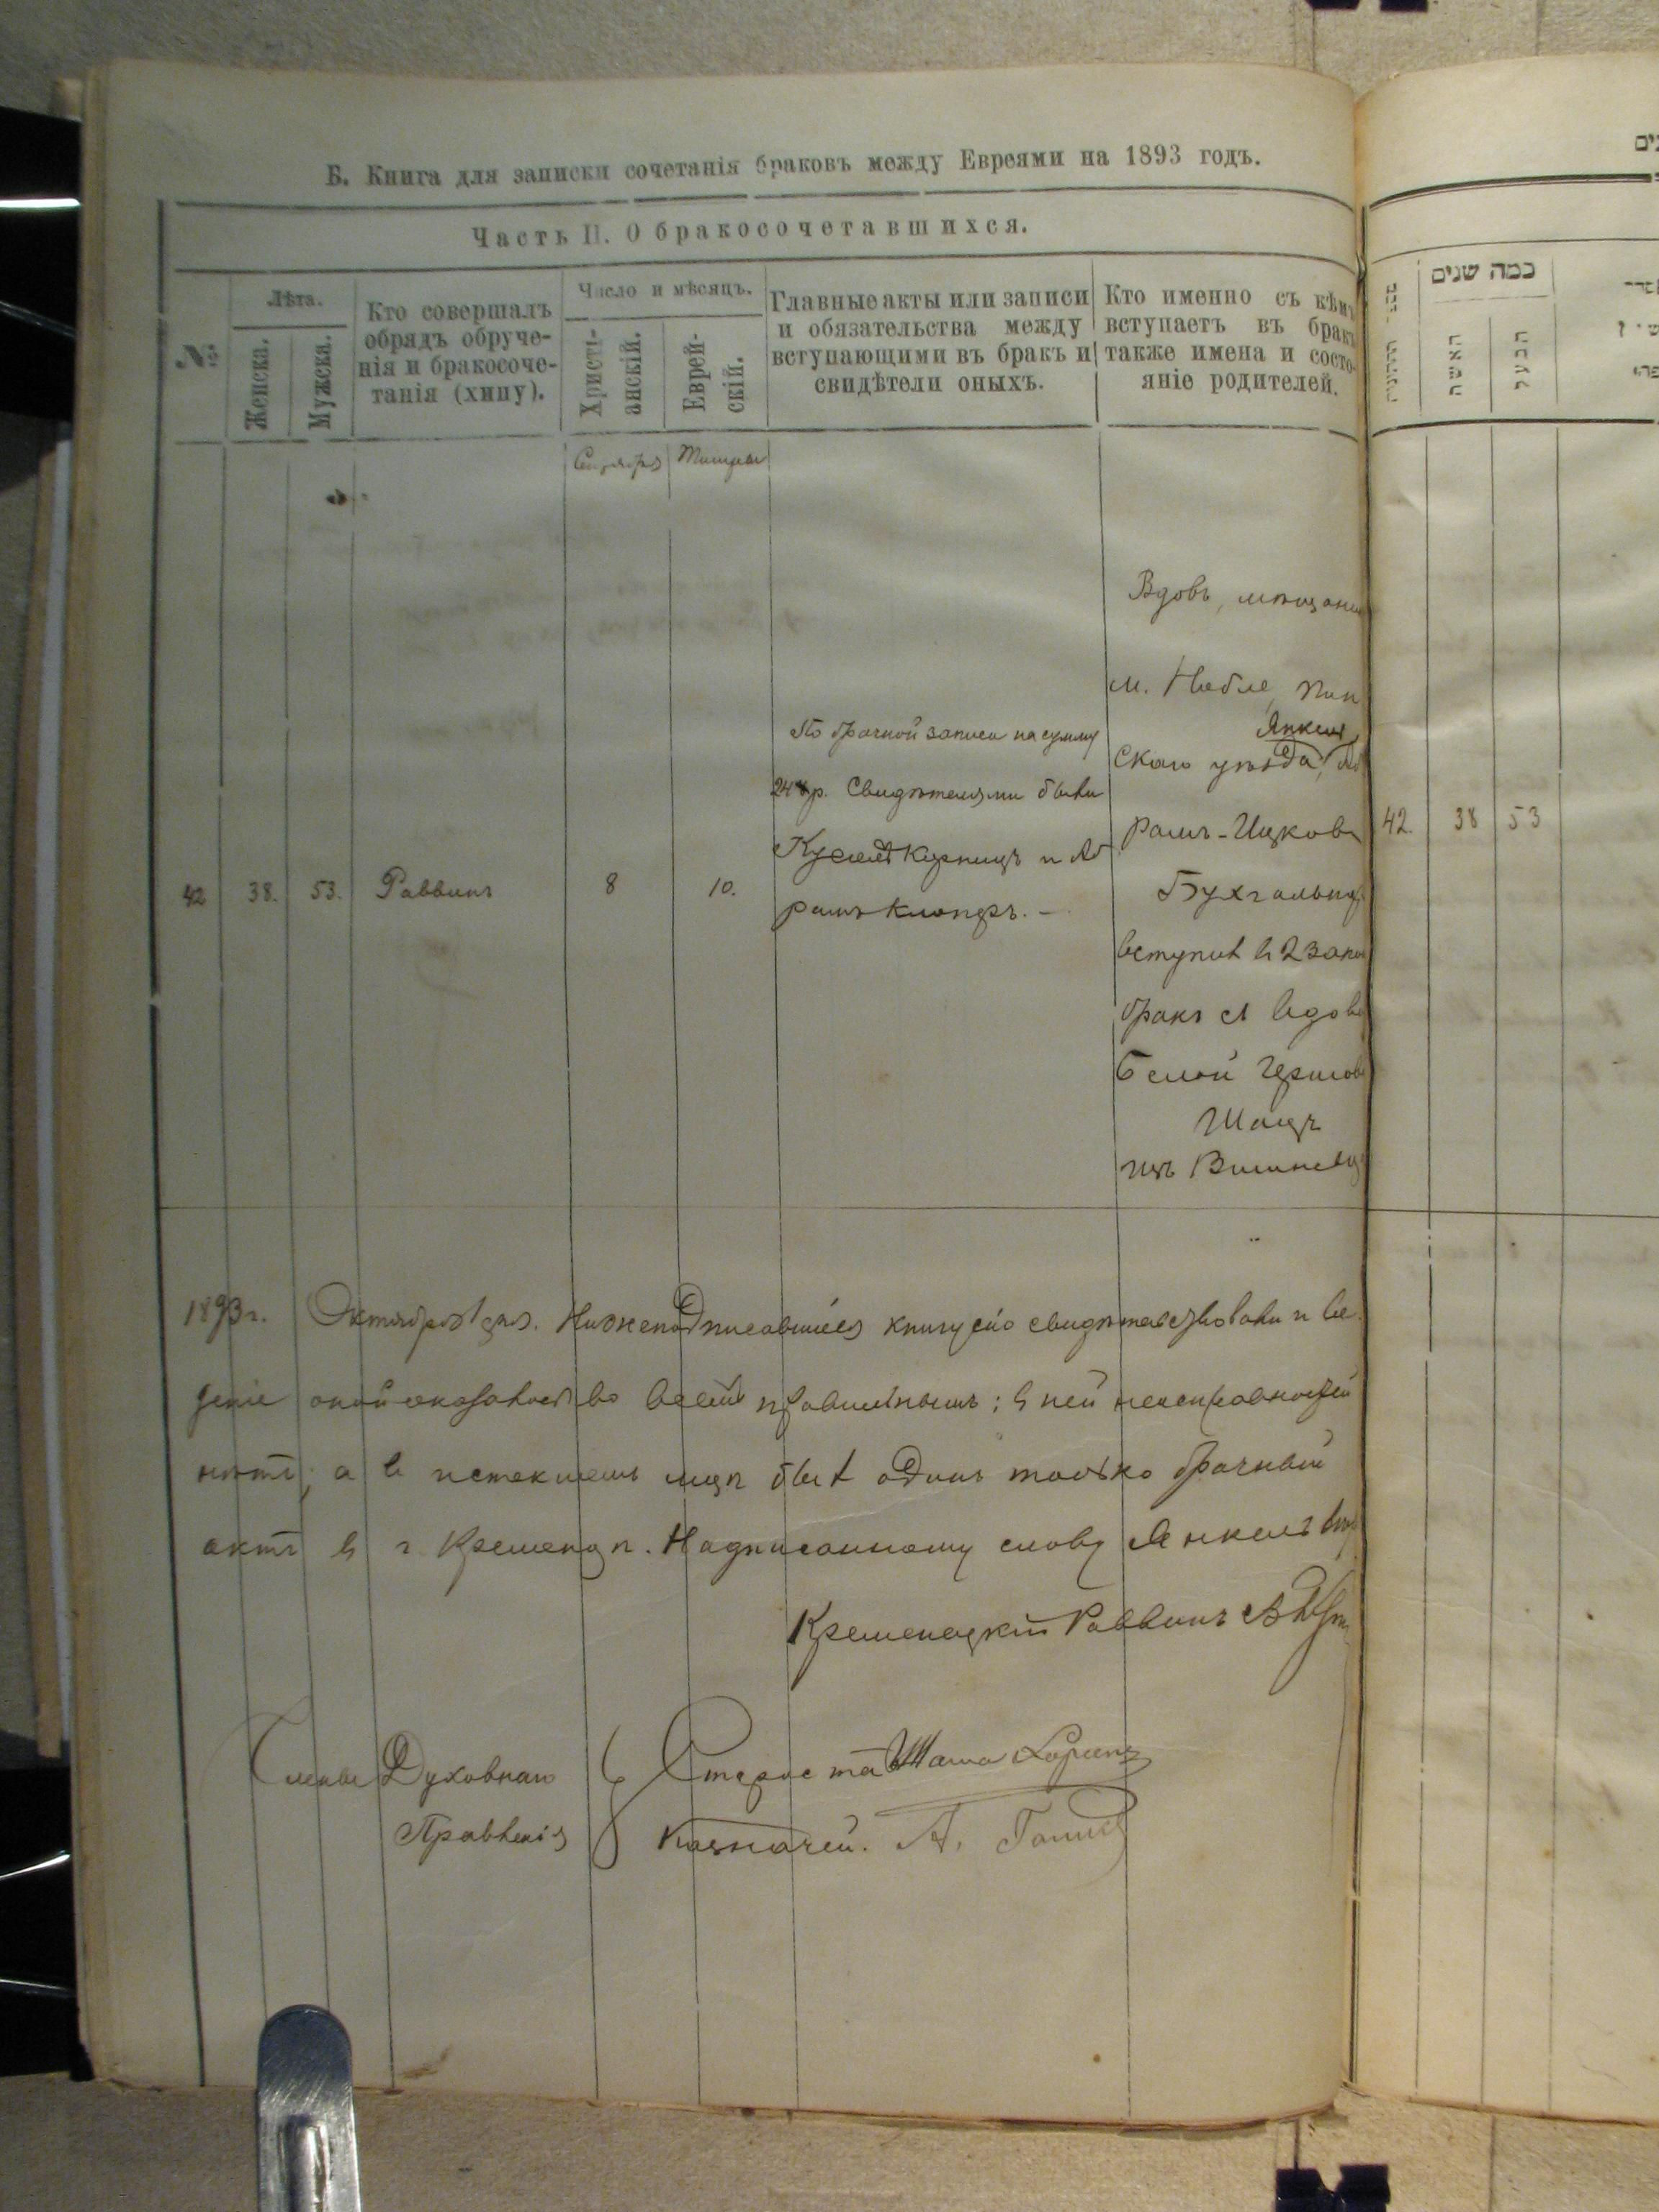 Б. Книга для записки сочетанія браковъ между Евреями на 1893 годъ.
Часть II. О бракосочетавшихся.
№
Лѣта.
Женска.
Мужска.
Кто совершалъ
обрядъ обруче-
нія и бракосоче-
танія (хипу).
Число и мѣсяцъ.
Христі-
анскій.
Еврей-
скій.
Главные акты или записи
и обязательства между
вступающими въ бракъ и
свидѣтели оныхъ.
Кто именно съ кѣмъ
вступаетъ въ бракъ
также имена и состо-
яніе родителей.
כמה שנים
האשה
הבעל
Сентября
Тишри
42
38.
53.
Раввинъ
8
10.
По брачной записи на сумму
24 р. Свидѣтелями были
и Аб
рамъ
Вдовъ, мѣщани
м. Пин
Янкель
скаго уѣзда, Аб
рамъ-Ицков
Бухгальт
вступил в 2 закон
бракъ съ вдово
Белой Гершков
Шацъ
изъ Вишневц
42.
38
53
1893 г. Октября 1 дня. Нижеподписавшіеся книгу сію свидѣтельствовали и ве
деніе оной оказалось во всемъ правильнымъ; в ней неисправностей
нѣтъ, а в истекшемъ мцѣ был один только брачный
актъ в г. Кременцѣ. Надписанному слову Янкель вѣр
Кременецкій Раввинъ
Члены Духовнаго
Правленія
Староста
Казначей. А.